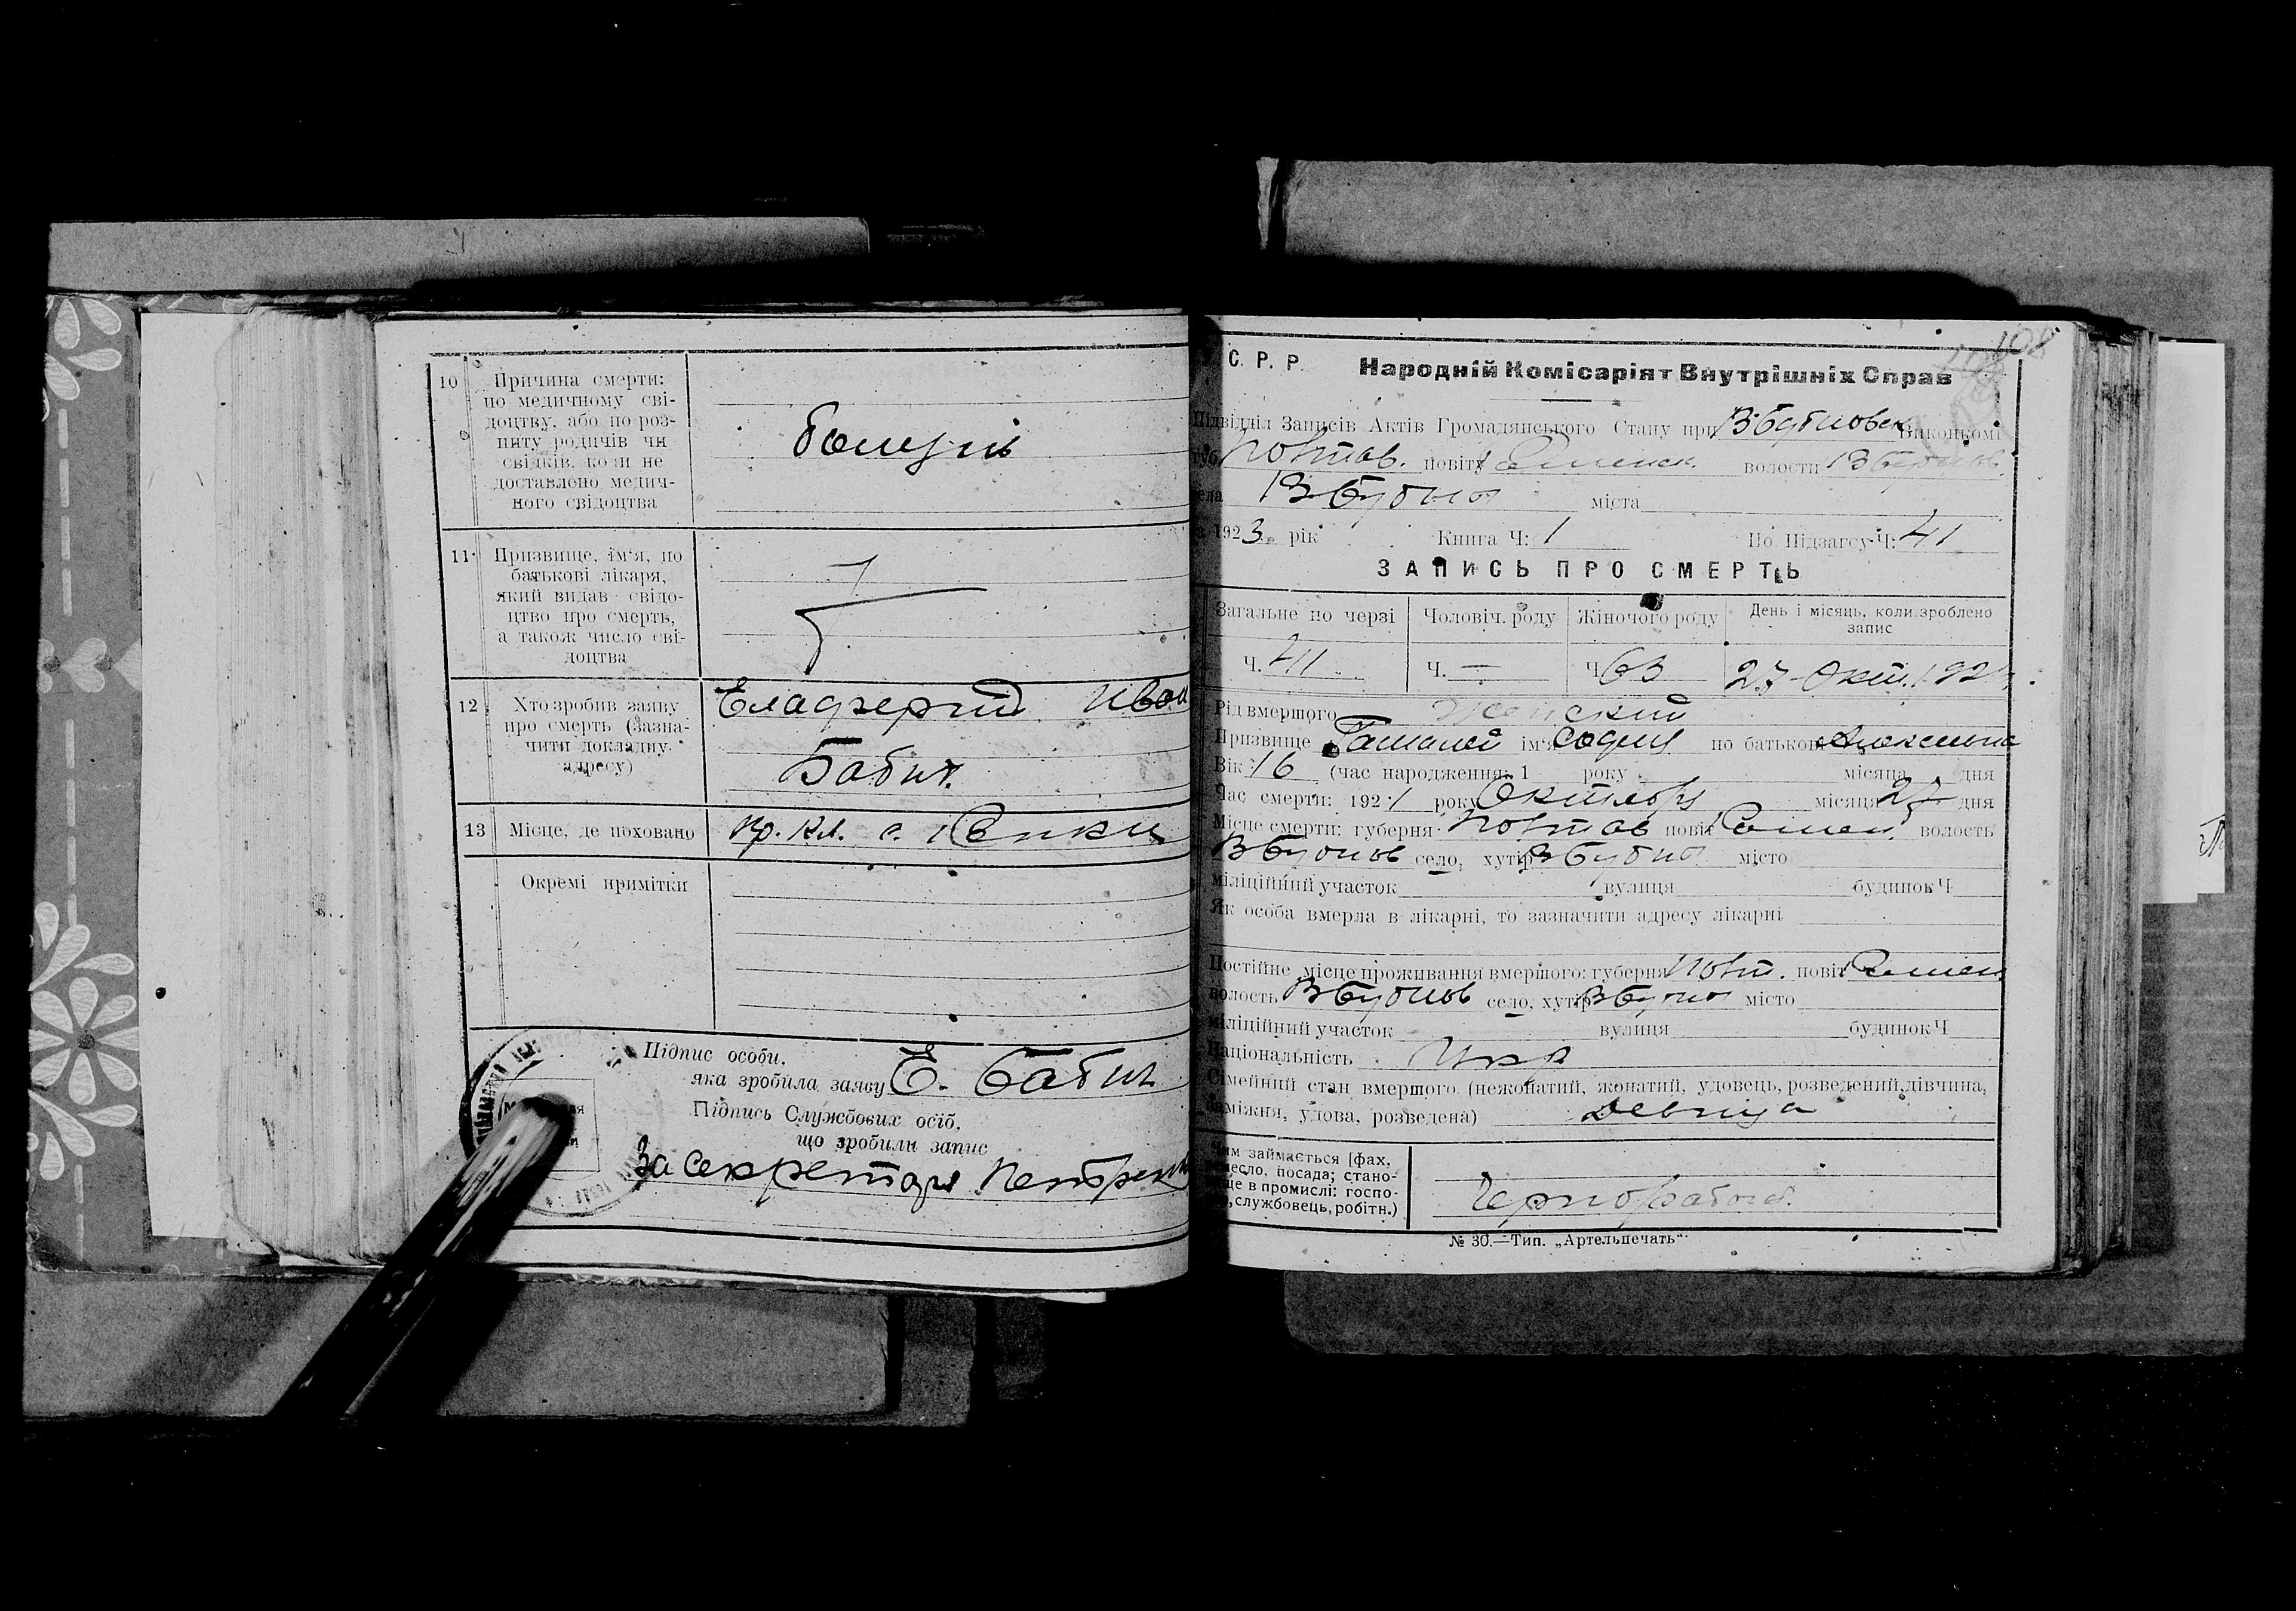 10 Причина смерти:
по медичному сві-
доцтву, або по роз-
питу родичів чи
свідків, коли не
доставлено медич-
ного свідоцтва
болезнь
11 Призвище, ім'я, по
батькові лікаря,
який видав свідо-
цтво про смерть,
а також число сві-
доцтва
12 Хто зробив заяву
про смерть (зазна-
чити докладну
адресу)
Бабич
13 Місце, де поховано
пр. кл. с.
Окремі примітки
Підпис особи,
яка зробила заяву Е. Бабич
Підпись Службових осіб,
що зробили запис
За секретаря
108
С. Р. Р. Народній Комісаріят Внутрішніх Справ
Підвідділ Записів Актів Громадянського Стану при Виконкомі
губ. Полтав. повіту волости
села міста
1923 рік Книга Ч: 1 По Підзагсу Ч: 41
ЗАПИСЬ ПРО СМЕРТЬ
Загальне по черзі Чоловіч. роду Жіночого роду День і місяць, коли зроблено
запис
Ч. Ч. — Ч 63 27 Окт. 192
Рід вмершого Женский
Призвище Гамалей ім'я София по батькові
Вік 16 (час народження: 1 року місяця дня
Час смерти: 1921 року Октября місяця 27 дня
Місце смерти: губерня Полтав повіт Ромен. волость
село, хутір місто
міліційний участок вулиця будинок Ч
Як особа вмерла в лікарні, то зазначити адресу лікарні
Постійне місце проживання вмершого: губерня Полт. повіт Ромен
волость село, хутір місто
міліційний участок вулиця будинок Ч
Національність Укр
Сімейний стан вмершого (нежонатий, жонатий, удовець, розведений, дівчина,
заміжня, удова, розведена) Девица
Чим займається [фах,
ремесло, посада; стано-
ще в промислі: госпо-
, службовець, робітн.)
Чернорабоч.
№ 30.—Тип. „Артельпечать“